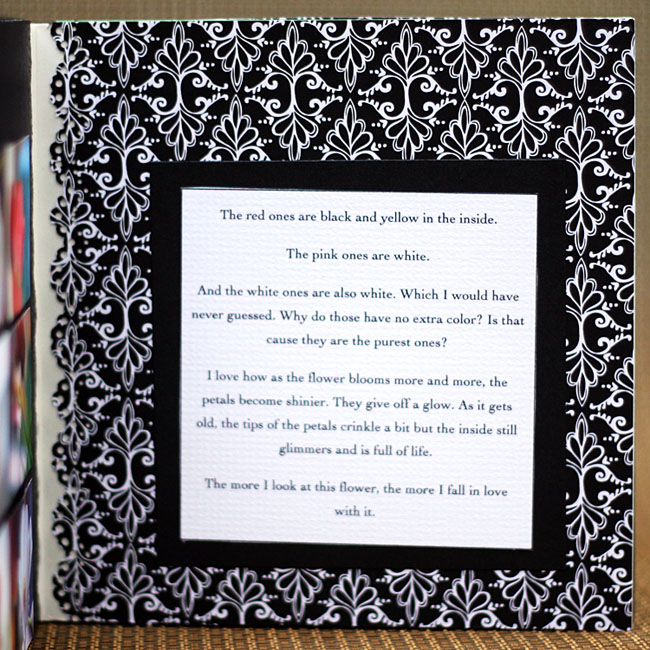 The red ones are black and yellow in the inside.
The pink ones are white.
And the white ones are also white. Which I would have
never guessed. Why do those have no extra color? Is that
cause they are the purest ones?
I love how as the flower blooms more and more, the
petals become shinier. They give off a glow. As it gets
old, the tips of the petals crinkle a bit but the inside still
glimmers and is full of life.
The more I look at this flower, the more I fall in love
with it.